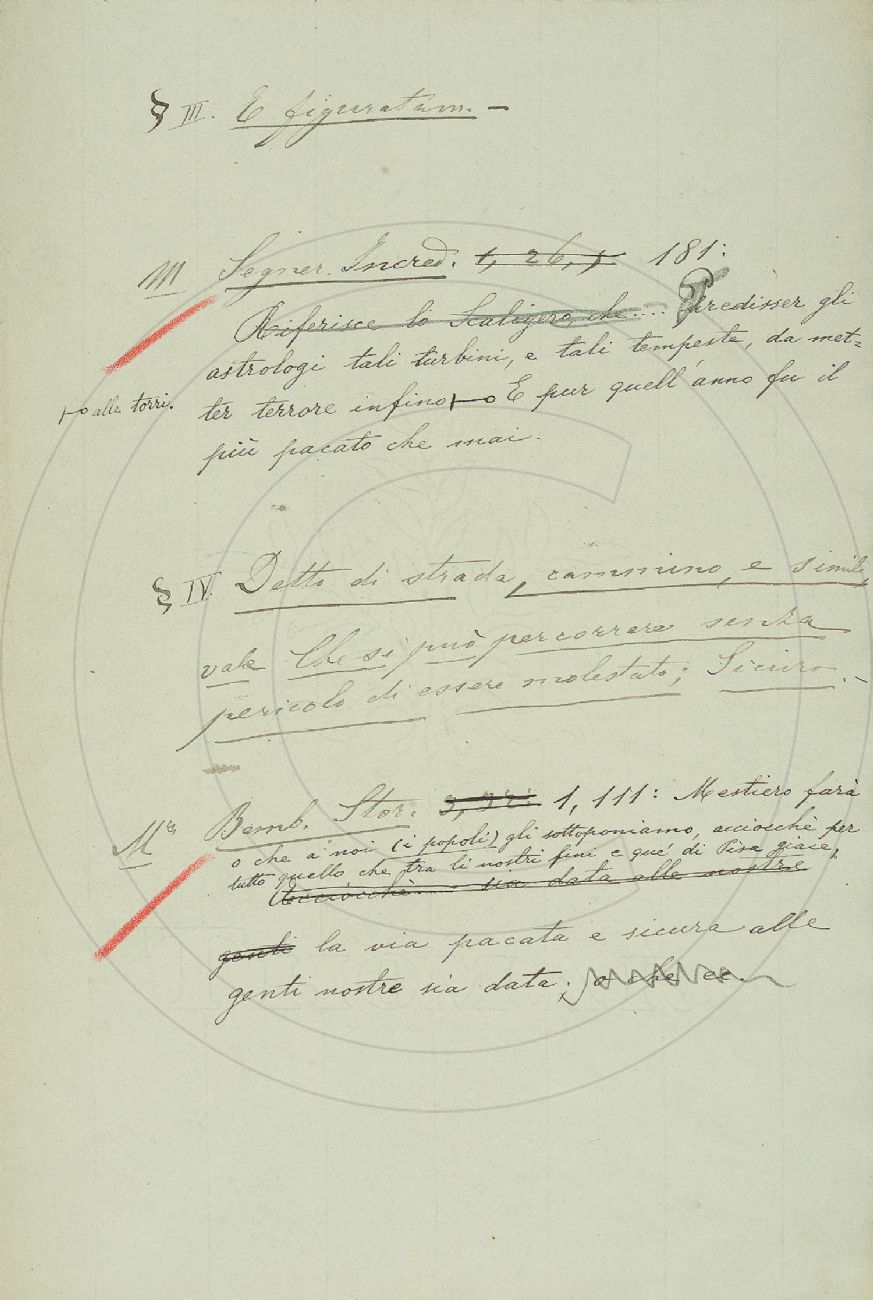 § III. E figuratam. —
M Segner. Incred. 1, 26, 181:
Riferisce lo Scaligero, che.... Predisser gli
astrologi tali turbini, e tali tempeste, da met=
alle torri.
ter terrore infino E pur quell'anno fu il
più pacato che mai.
§ IV. Detto di strada, cammino, e simili,
vale Che si può percorrere senza
pericolo di essere molestato; Sicuro. -
Bemb. Stor. 1, 111: Mestiero farà
o che a noi (i popoli) gli sottoponiamo, acciocchè per
tutto quello che fra li nostri fini e que' di Pisa giace,
Acciocchè .... sia data alle nostre
genti la via pacata e sicura alle
genti nostre sia data; o che ec.